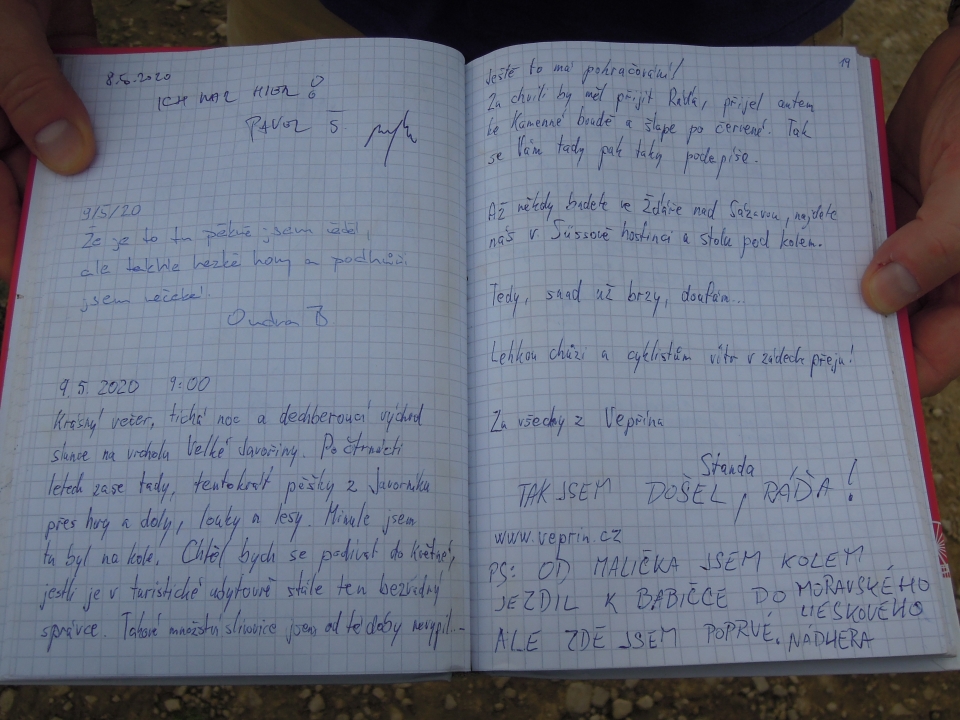 8.5.2020
ICH WAR HIER
PAVOL Š.
9/5/20
Že je to tu pěkné jsem věděl,
ale takhle hezké hory a podhůří
jsem nečekal.
Ondra B
9.5.2020 9:00
Krásný večer, tichá noc a dechberoucí východ
slunce na vrcholu Velké Javořiny. Po čtrnácti
letech zase tady, tentokrát pěšky z Javorníka
přes hory a doly, louky a lesy. Minule jsem
tu byl na kole. Chtěl bych se podívat do Květné,
jestli je v turistické ubytovně stále ten bezvadný
správce. Takové množství slivovice jsem od té doby nevypil...
19
Ještě to má pokračování!
Za chvíli by měl přijít Ráďa, přijel autem
ke Kamenné boudě a šlape po červené. Tak
se Vám tady pak taky podepíše.
Až někdy budete ve Žďáře nad Sázavou, najdete
nás v Süssově hostinci u stolu pod kolem.
Tedy, snad už brzy, doufám...
Lehkou chůzi a cyklistům vítr v zádech přeju!
Za všechny z Vepřína
Standa
TAK JSEM DOŠEL, RÁĎA!
www.veprin.cz
PS: OD MALIČKA JSEM KOLEM
JEZDIL K BABIČCE DO MORAVSKÉHO
LIESKOVÉHO
ALE ZDE JSEM POPRVÉ. NÁDHERA